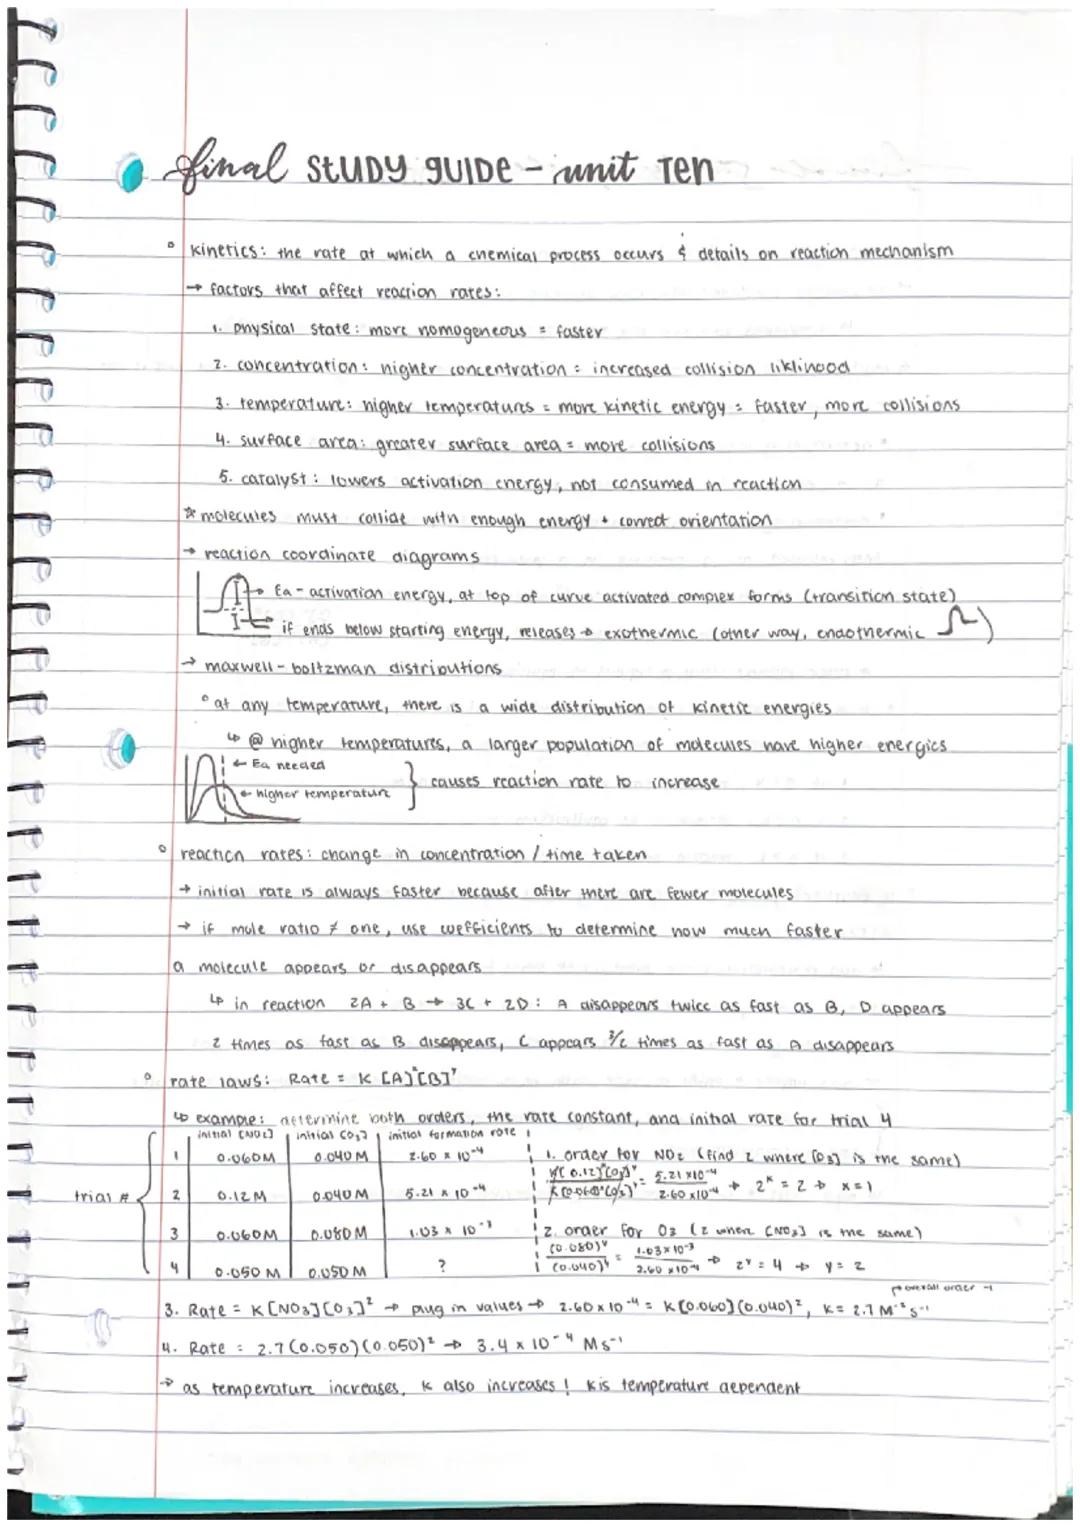 final STUDY GUIDE - unit Ten
° kinetics: the rate at which a chemical process occurs & details on reaction mechanism
→ factors that affect reaction rates:
1. physical state: more homogeneous = faster
2. concentration: higher concentration = increased collision liklihood
3. temperature: higher temperatures = more kinetic energy = faster, more collisions
4. surface area: greater surface area = more collisions
5. catalyst: lowers activation energy, not consumed in reaction
* molecules must collide with enough energy + correct orientation
→ reaction coordinate diagrams
→ Ea - activation energy, at top of curve activated complex forms (transition state)
→ if ends below starting energy, releases → exothermic (other way, endothermic )
→ maxwell-boltzman distributions
° at any temperature, there is a wide distribution of kinetic energies
↳ @ higher temperatures, a larger population of molecules have higher energies
← Ea needed
← higher temperature } causes reaction rate to increase
° reaction rates: change in concentration / time taken
→ initial rate is always faster because after there are fewer molecules
→ if mole ratio ≠ one, use coefficients to determine how much faster
a molecule appears or disappears
↳ in reaction 2A + B → 3C + 2D: A disappears twice as fast as B, D appears
2 times as fast as B disappears, C appears 3/2 times as fast as A disappears
° rate laws: Rate = K [A]ˣ[B]ʸ
↳ example: determine both orders, the rate constant, and initial rate for trial 4
initial [NO₂] initial [O₃] initial formation rate
trial #
1 0.060M 0.040M 2.60 x 10⁻⁴
2 0.12 M 0.040M 5.21 x 10⁻⁴
3 0.060M 0.080M 1.03 x 10⁻³
4 0.050 M 0.050M ?
1. order for NO₂ (find 2 where [O₃] is the same)
K(0.12)ˣ(O₃)ʸ / K(0.060)ˣ(O₃)ʸ = 5.21 x10⁻⁴ / 2.60 x10⁻⁴ → 2ˣ = 2 → x=1
2. order for O3 (2 when [NO₂] is the same)
(0.080)ʸ / (0.040)ʸ = 1.03 x 10⁻³ / 2.60 x10⁻⁴ → 2ʸ = 4 → y = 2
→ overall order -1
3. Rate = K [NO₃][O₃]² → plug in values → 2.60 x 10⁻⁴ = K(0.060)(0.040)², K = 2.7 M⁻²s⁻¹
4. Rate = 2.7 (0.050)(0.050)² → 3.4 x 10⁻⁴ Ms⁻¹
→ as temperature increases, K also increases! K is temperature dependent